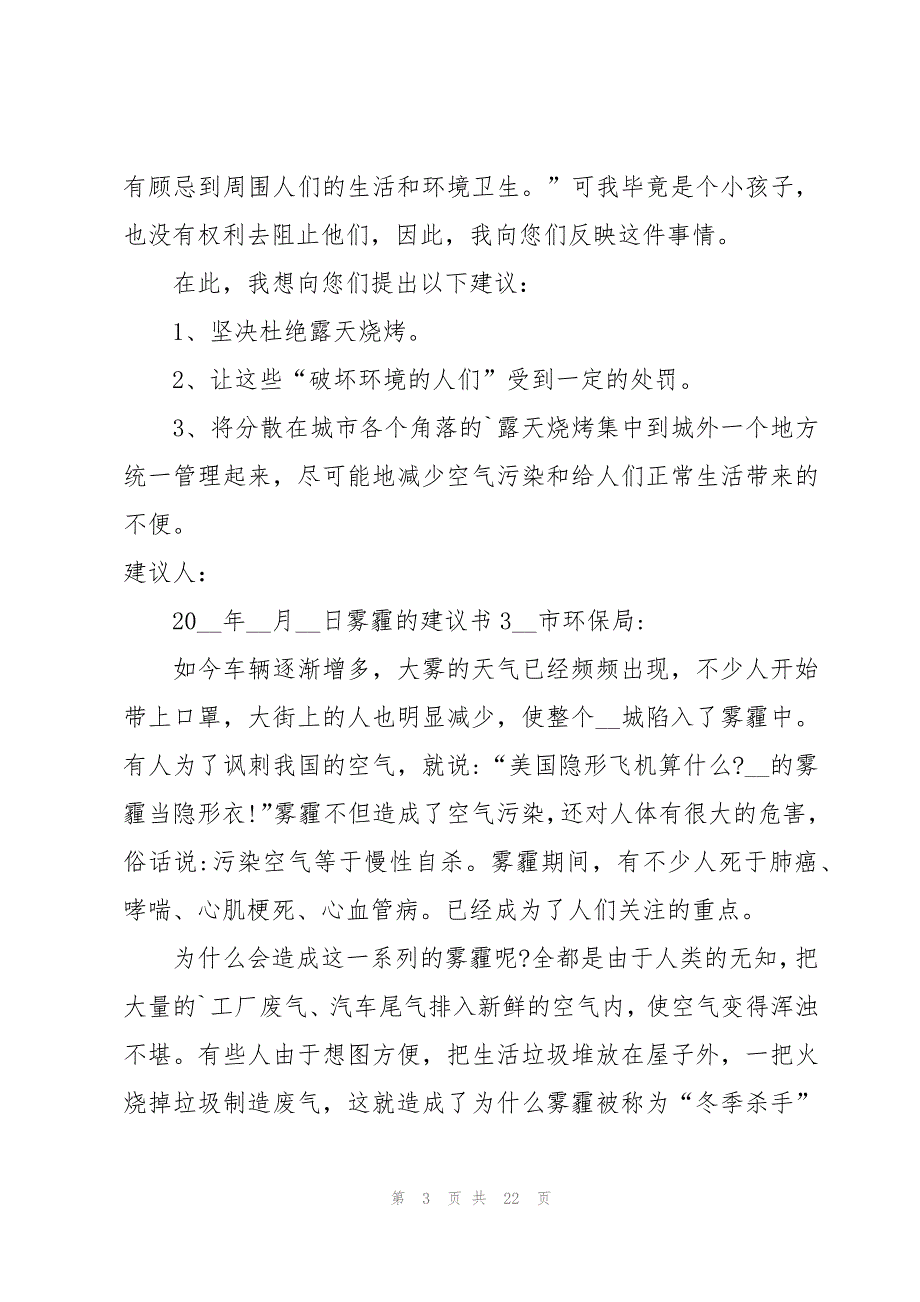 有顾忌到周围人们的生活和环境卫生。”可我毕竟是个小孩子，
也没有权利去阻止他们，因此，我向您们反映这件事情。
在此，我想向您们提出以下建议：
1、坚决杜绝露天烧烤。
2、让这些“破坏环境的人们”受到一定的处罚。
3、将分散在城市各个角落的`露天烧烤集中到城外一个地方
统一管理起来，尽可能地减少空气污染和给人们正常生活带来的
不便。
建议人：
20__年__月__日雾霾的建议书 3__市环保局:
如今车辆逐渐增多，大雾的天气已经频频出现，不少人开始
带上口罩，大街上的人也明显减少，使整个__城陷入了雾霾中。
有人为了讽刺我国的空气，就说：“美国隐形飞机算什么?__的雾
霾当隐形衣!”雾霾不但造成了空气污染，还对人体有很大的危害，
俗话说:污染空气等于慢性自杀。雾霾期间，有不少人死于肺癌、
哮喘、心肌梗死、心血管病。已经成为了人们关注的重点。
为什么会造成这一系列的雾霾呢?全都是由于人类的无知，把
大量的`工厂废气、汽车尾气排入新鲜的空气内，使空气变得浑浊
不堪。有些人由于想图方便，把生活垃圾堆放在屋子外，一把火
烧掉垃圾制造废气，这就造成了为什么雾霾被称为“冬季杀手”
第 3 页 共 22 页